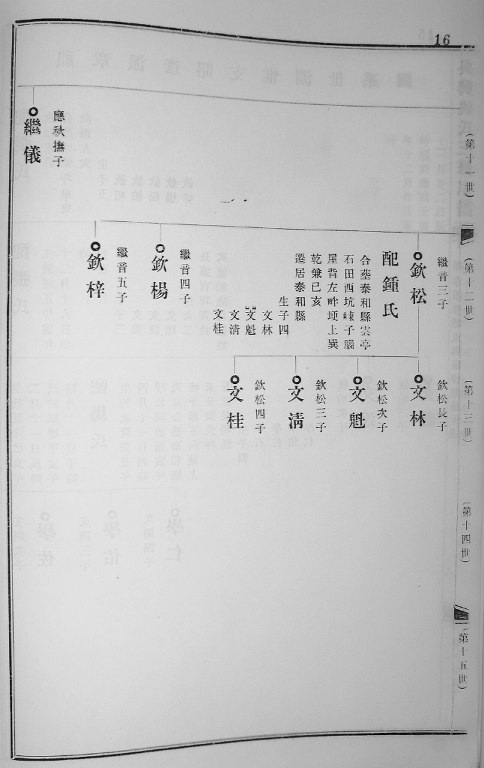 16
(第十一世)
應秋撫子
繼儀
(第十二世)
繼音三子
欽松
配鍾氏
合塟泰和縣雲亭
石田西坑崠子腦
屋背左畔埂上巽
乾兼巳亥
遷居泰和縣
生子四
文林
文魁
文清
文桂
繼音四子
欽楊
繼音五子
欽梓
(第十三世)
欽松長子
文林
欽松次子
文魁
欽松三子
文清
欽松四子
文桂
(第十四世)
(第十五世)